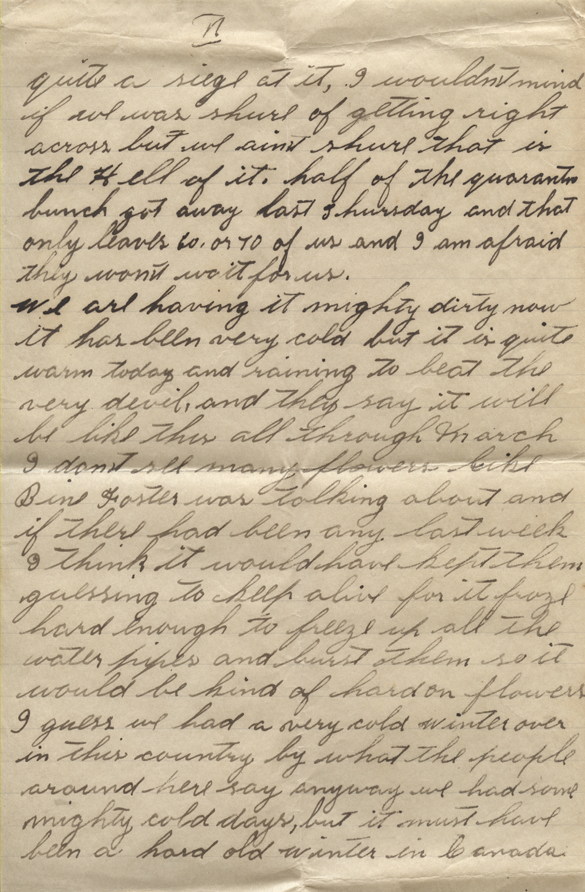 II
quite a siege at it, I wouldn't mind
if we was shure of getting right
across but we ain't shure that is
the Hell of it. half of the quarantn
bunch got away last Thursday and that
only leaves 60. or 70 of us and I am afraid
they won't wait for us.
we are having it mighty dirty now
it has been very cold but it is quite
warm today and raining to beat the
very devil, and they say it will
be like this all through March
I don't see many flowers like
Bine Foster was talking about and
if there had been any last week
I think it would have kept them
guessing to keep alive for it froze
hard enough to freeze up all the
water pipes and burst them so it
would be kind of hard on flowers
I guess we had a very cold winter over
in this country by what the people
around here say anyway we had some
mighty cold days, but it must have
been a hard old winter in Canada